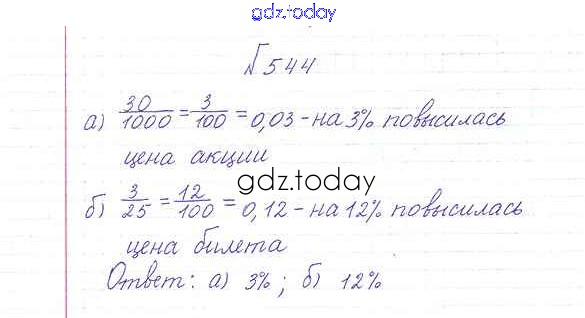 gdz.today
№544
а) 30/1000 = 3/100 = 0,03 - на 3% повысилась
цена акции
gdz.today
б) 3/25 = 12/100 = 0,12 - на 12% повысилась
цена билета
Ответ: а) 3%; б) 12%